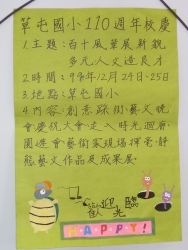 草屯國小110週年校慶
1.主題:百十風華展新觀
多元人文造良才
2.時間:98年12月24日-25日
3.地點:草屯國小
4.內容:創意踩街、藝文晚
會、慶祝大會、走入時光迴廊、
園遊會、藝術家現場揮毫、靜
態藝文作品及成果展。
歡迎光臨
HAPPY!